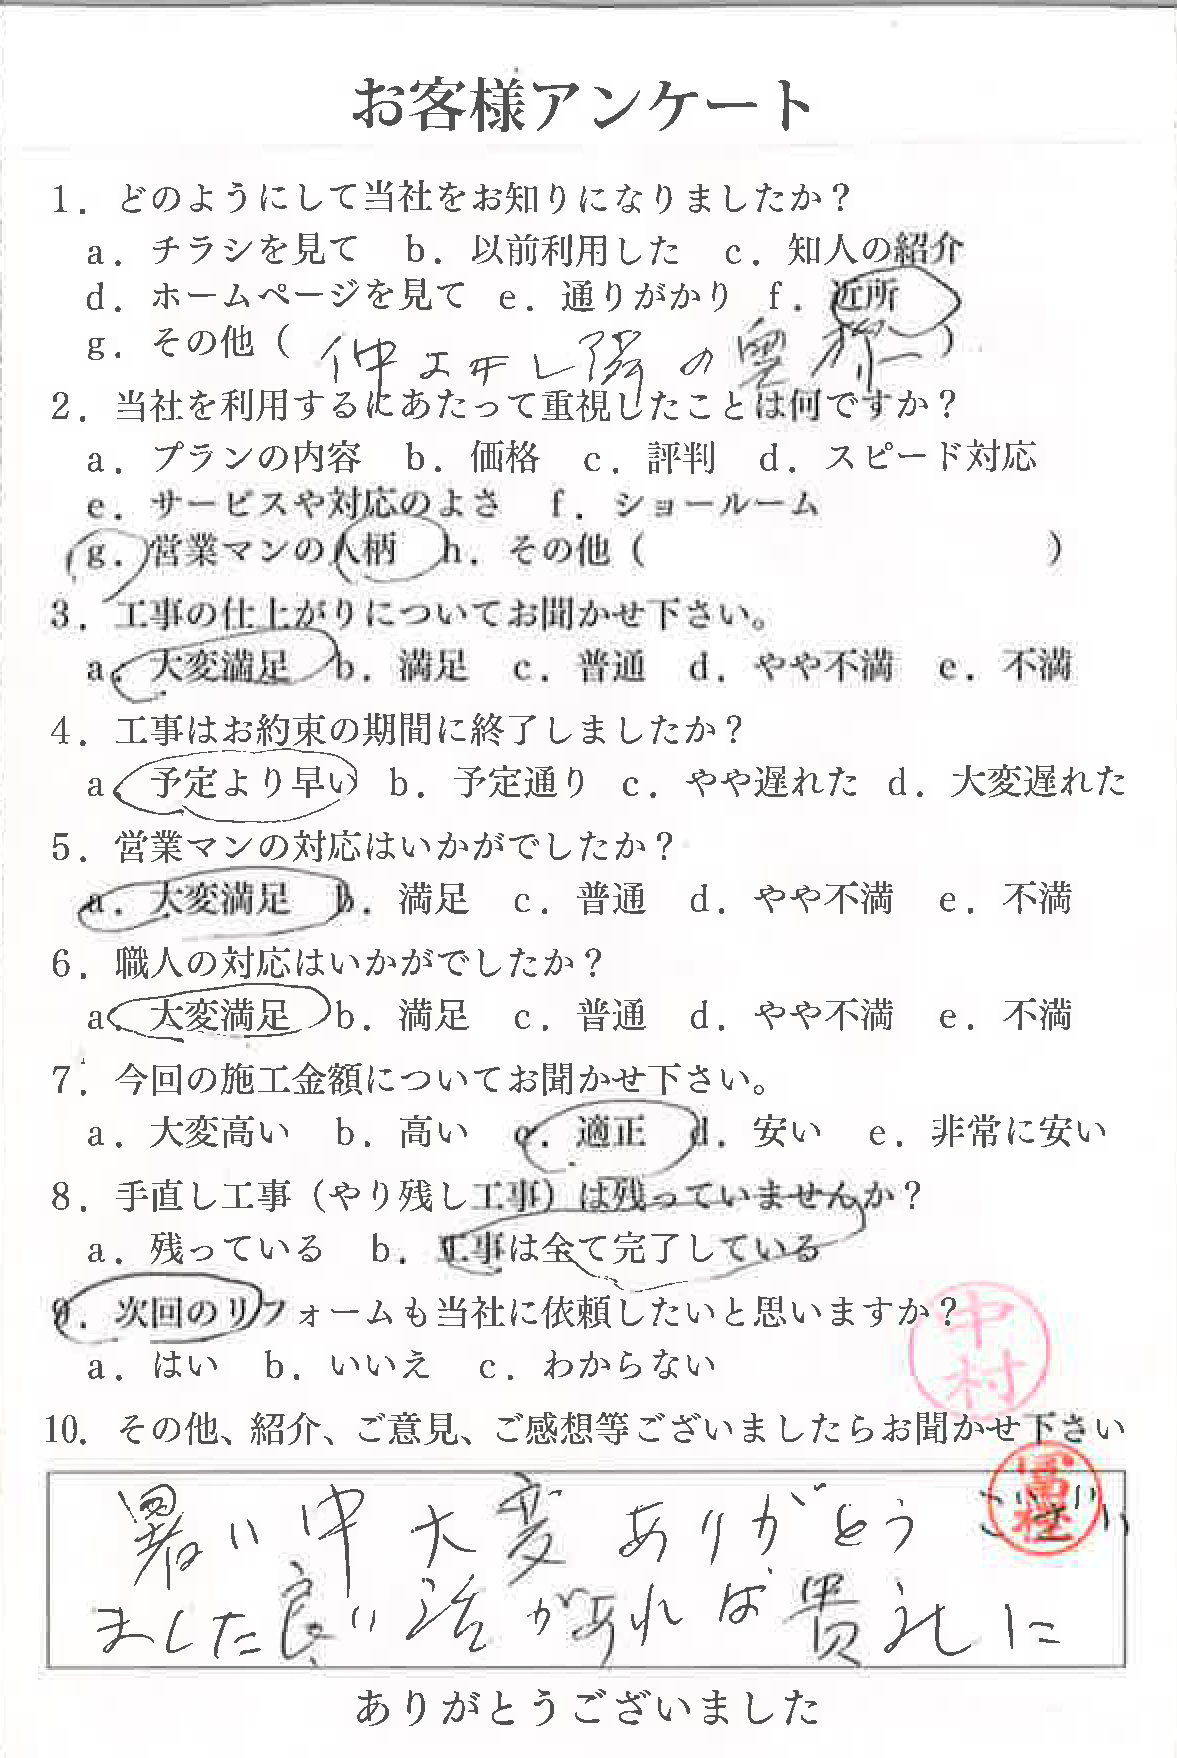 お客様アンケート
1．どのようにして当社をお知りになりましたか？
a．チラシを見て　b．以前利用した　c．知人の紹介
d．ホームページを見て　e．通りがかり　f．近所
g．その他（　隣の奥　）
2．当社を利用するにあたって重視したことは何ですか？
a．プランの内容　b．価格　c．評判　d．スピード対応
e．サービスや対応のよさ　f．ショールーム
g．営業マンの人柄　h．その他（　　　）
3．工事の仕上がりについてお聞かせ下さい。
a．大変満足　b．満足　c．普通　d．やや不満　e．不満
4．工事はお約束の期間に終了しましたか？
a．予定より早い　b．予定通り　c．やや遅れた　d．大変遅れた
5．営業マンの対応はいかがでしたか？
a．大変満足　b．満足　c．普通　d．やや不満　e．不満
6．職人の対応はいかがでしたか？
a．大変満足　b．満足　c．普通　d．やや不満　e．不満
7．今回の施工金額についてお聞かせ下さい。
a．大変高い　b．高い　c．適正　d．安い　e．非常に安い
8．手直し工事（やり残し工事）は残っていませんか？
a．残っている　b．工事は全て完了している
9．次回のリフォームも当社に依頼したいと思いますか？
a．はい　b．いいえ　c．わからない
中村
10．その他、紹介、ご意見、ご感想等ございましたらお聞かせ下さい
暑い中大変ありがとうござい
ました良い話があれば貴社に
ありがとうございました